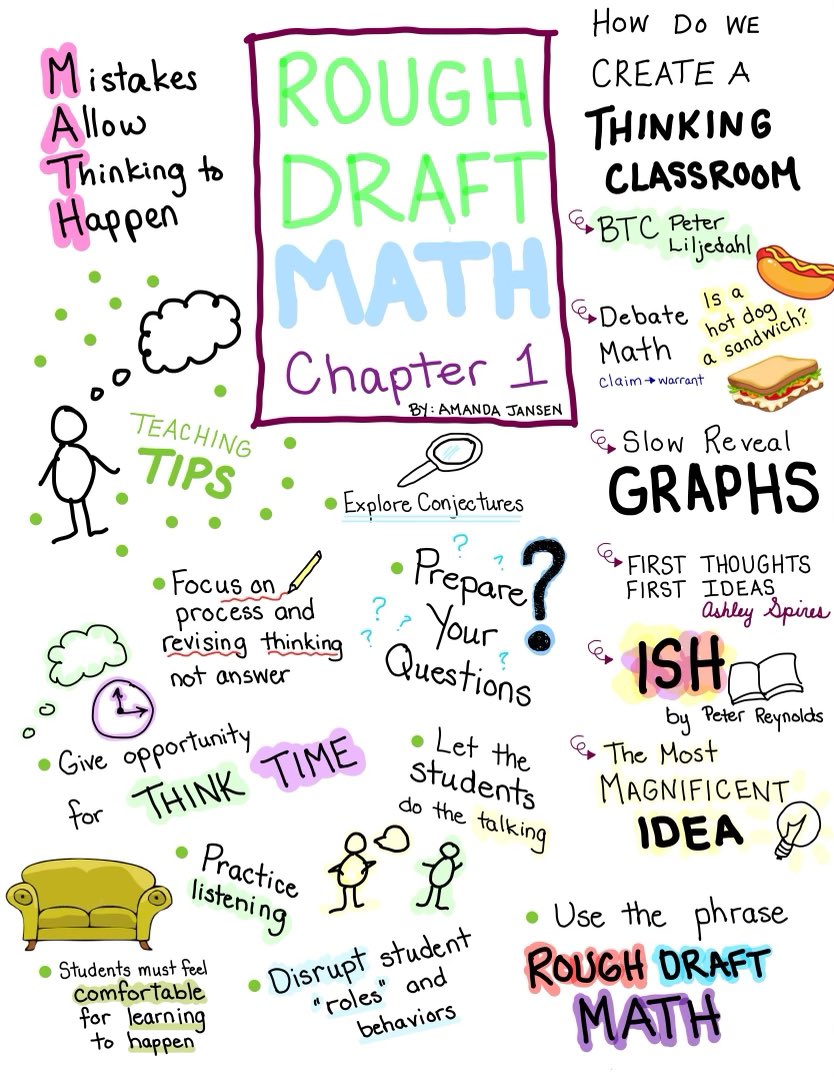 Mistakes
Allow
Thinking to
Happen
ROUGH
DRAFT
MATH
Chapter 1
BY: AMANDA JANSEN
HOW DO WE
CREATE A
THINKING
CLASSROOM
BTC Peter
Liljedahl
Debate
Math
claim → warrant
Is a
hot dog
a sandwich?
Slow Reveal
GRAPHS
FIRST THOUGHTS
FIRST IDEAS
Ashley Spires
ISH
by Peter Reynolds
The Most
MAGNIFICENT
IDEA
TEACHING
TIPS
Explore Conjectures
Focus on
process and
revising thinking
not answer
Prepare
Your
Questions
?
Give opportunity
for THINK TIME
Let the
students
do the talking
Practice
listening
Students must feel
comfortable
for learning
to happen
Disrupt student
"roles" and
behaviors
Use the phrase
ROUGH DRAFT
MATH